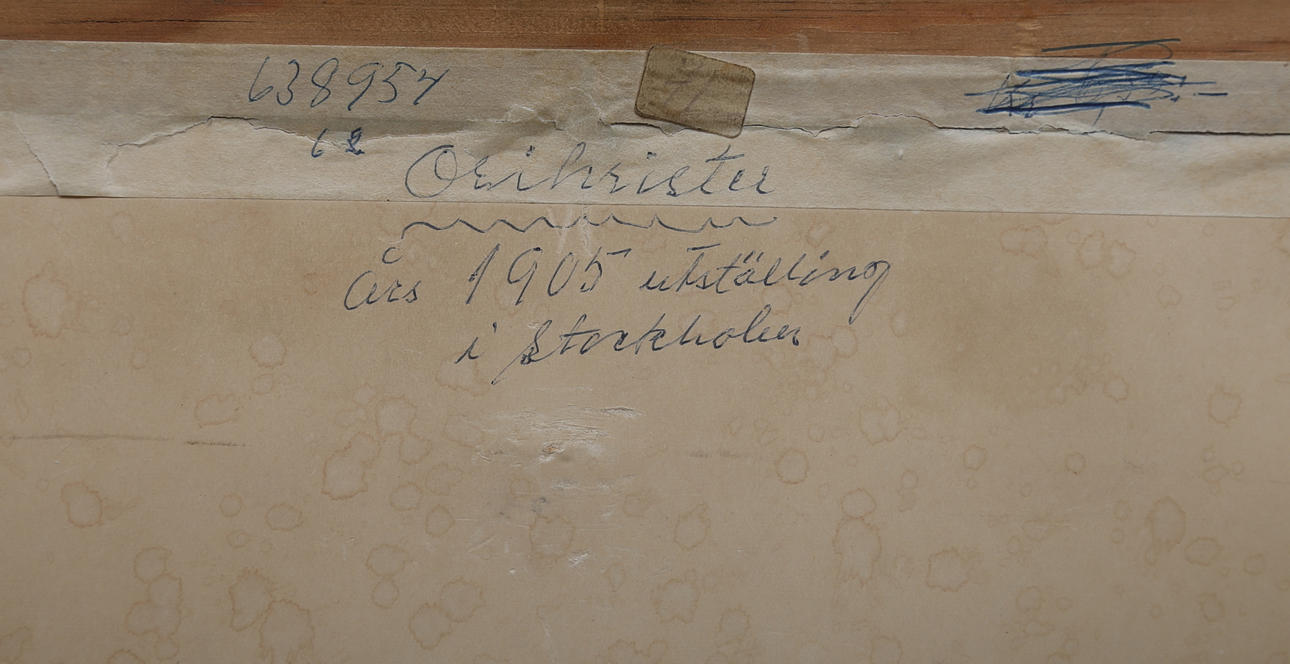 638954
62
Orikrister
års 1905 utställing
i Stockholm